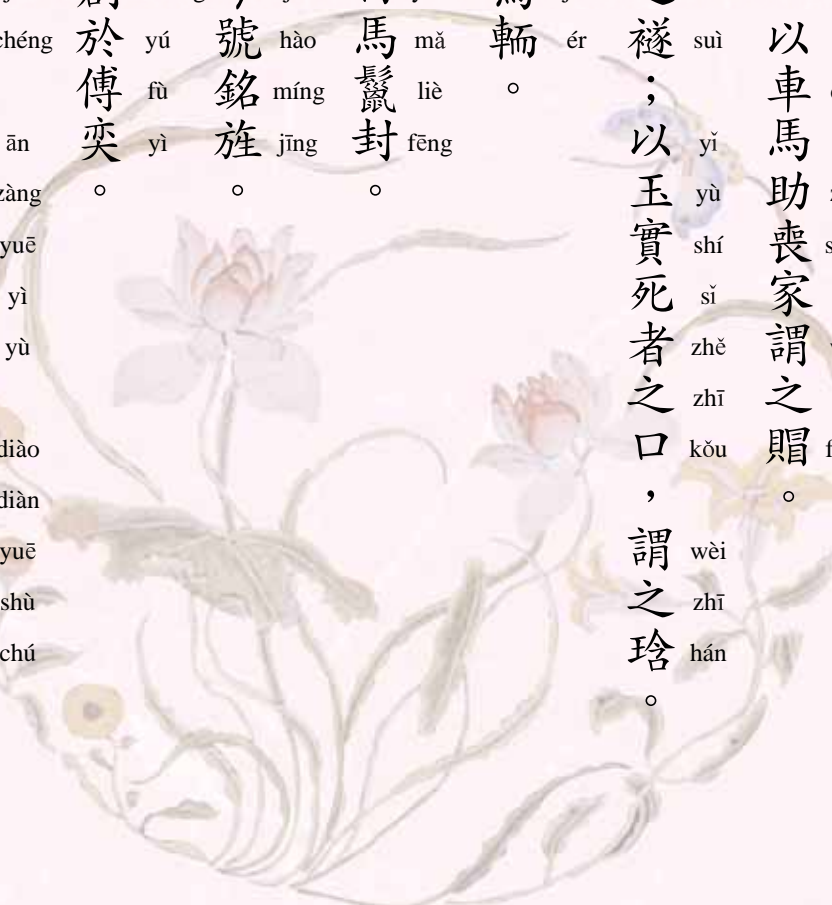 以車馬助喪家謂之賵。
襚；以玉實死者之口，謂之琀。
suì yǐ yù shí sǐ zhě zhī kǒu wèi zhī hán
輀。
ér
馬鬣封。
mǎ liè fēng
號銘旌。
hào míng jīng
於傅奕。
yú fù yì
chéng ān zàng yuē yì yù diào diàn yuē shù chú